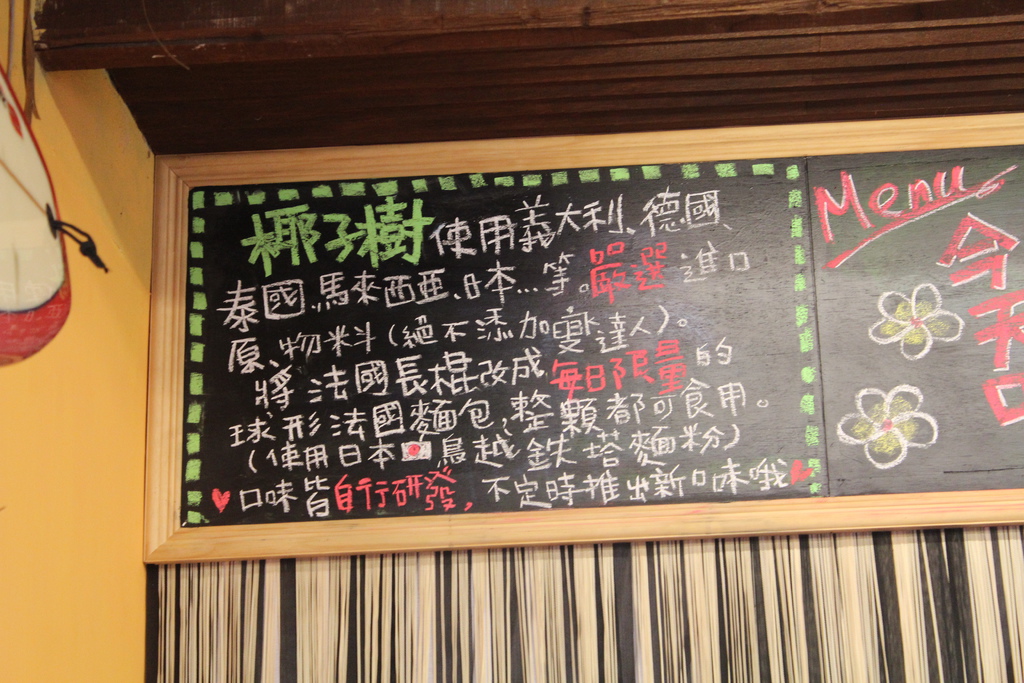 椰子樹使用義大利、德國、
泰國、馬來西亞、日本...等。嚴選進口
原、物料(絕不添加變達人)。
將法國長棍改成每日限量的
球形法國麵包,整顆都可食用。
(使用日本鳥越鉄塔麵粉)
口味皆自行研發,不定時推出新口味哦
Menu
今